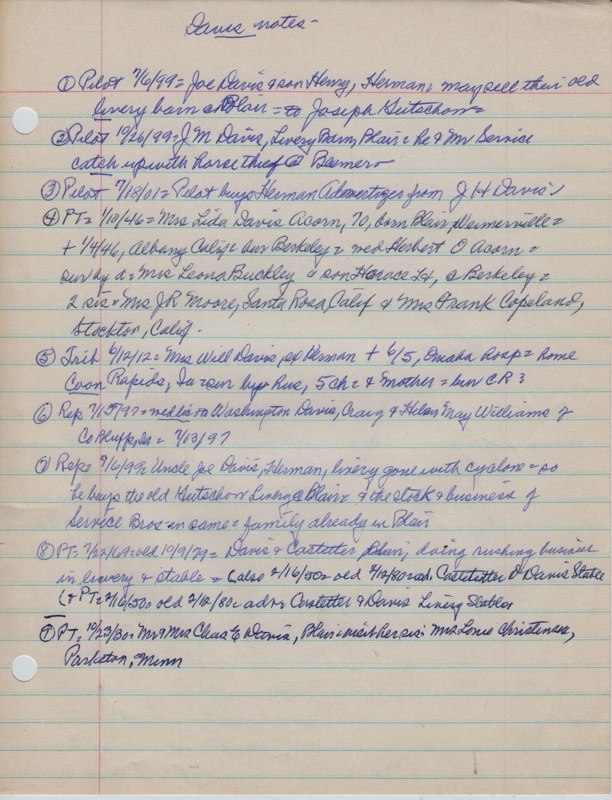 Davis notes -
① Pilot 7/6/99 = Joe Davis & son Henry, Herman = may sell their old
livery barn @ Blair = to Joseph Gutschow =
② Pilot 10/26/99 = J. M Davis, Livery Barn, Blair = he & Mr Service
catch up with horse thief @ Beemer
③ Pilot 7/18/01 = Pilot buys Herman Advertizer from J H Davis
④ PT = 1/10/46 = Mrs Lida Davis Acorn, 70, born Blair,
+ 1/4/46, Albany Calif = bur Berkeley = wed Herbert O Acorn =
sur by d = Mrs Leona Buckley & son Horace @ Berkeley =
2 sis = Mrs J R Moore, Santa Rosa, Calif & Mrs Frank Copeland,
Stockton, Calif -
⑤ Trib 6/12/12 = Mrs Will Davis, Herman + 6/5, Omaha hosp = home
Coon Rapids, Ia = sur by hus, 5 ch = & mother = bur C R ?
⑥ Rep 7/15/97 = wed lis to Washington Davis, Craig & Helen May Williams of
Co Bluffs, Ia = 7/13/97
⑦ Rep = 7/6/99 = Uncle Joe Davis, Herman, livery gone with cyclone = so
he buys the old Gutschow Livery @ Blair = & the stock & business of
Service Bros = in same = family already in Blair
⑧ PT = 7/22/69 = old 10/9/79 = Davis & Castetter, doing rushing business
in livery & stable = (also 2/16/50 = old 2/12/80 = ad. Castetter & Davis Stable
(+ PT = 2/16/50 = old 2/12/80 = adv = Castetter & Davis Livery Stables
⑨ PT = 10/23/30 = Mr & Mrs Chas E Davis, Blair = visit her sis = Mrs Louie Christensen,
Parkston, Minn